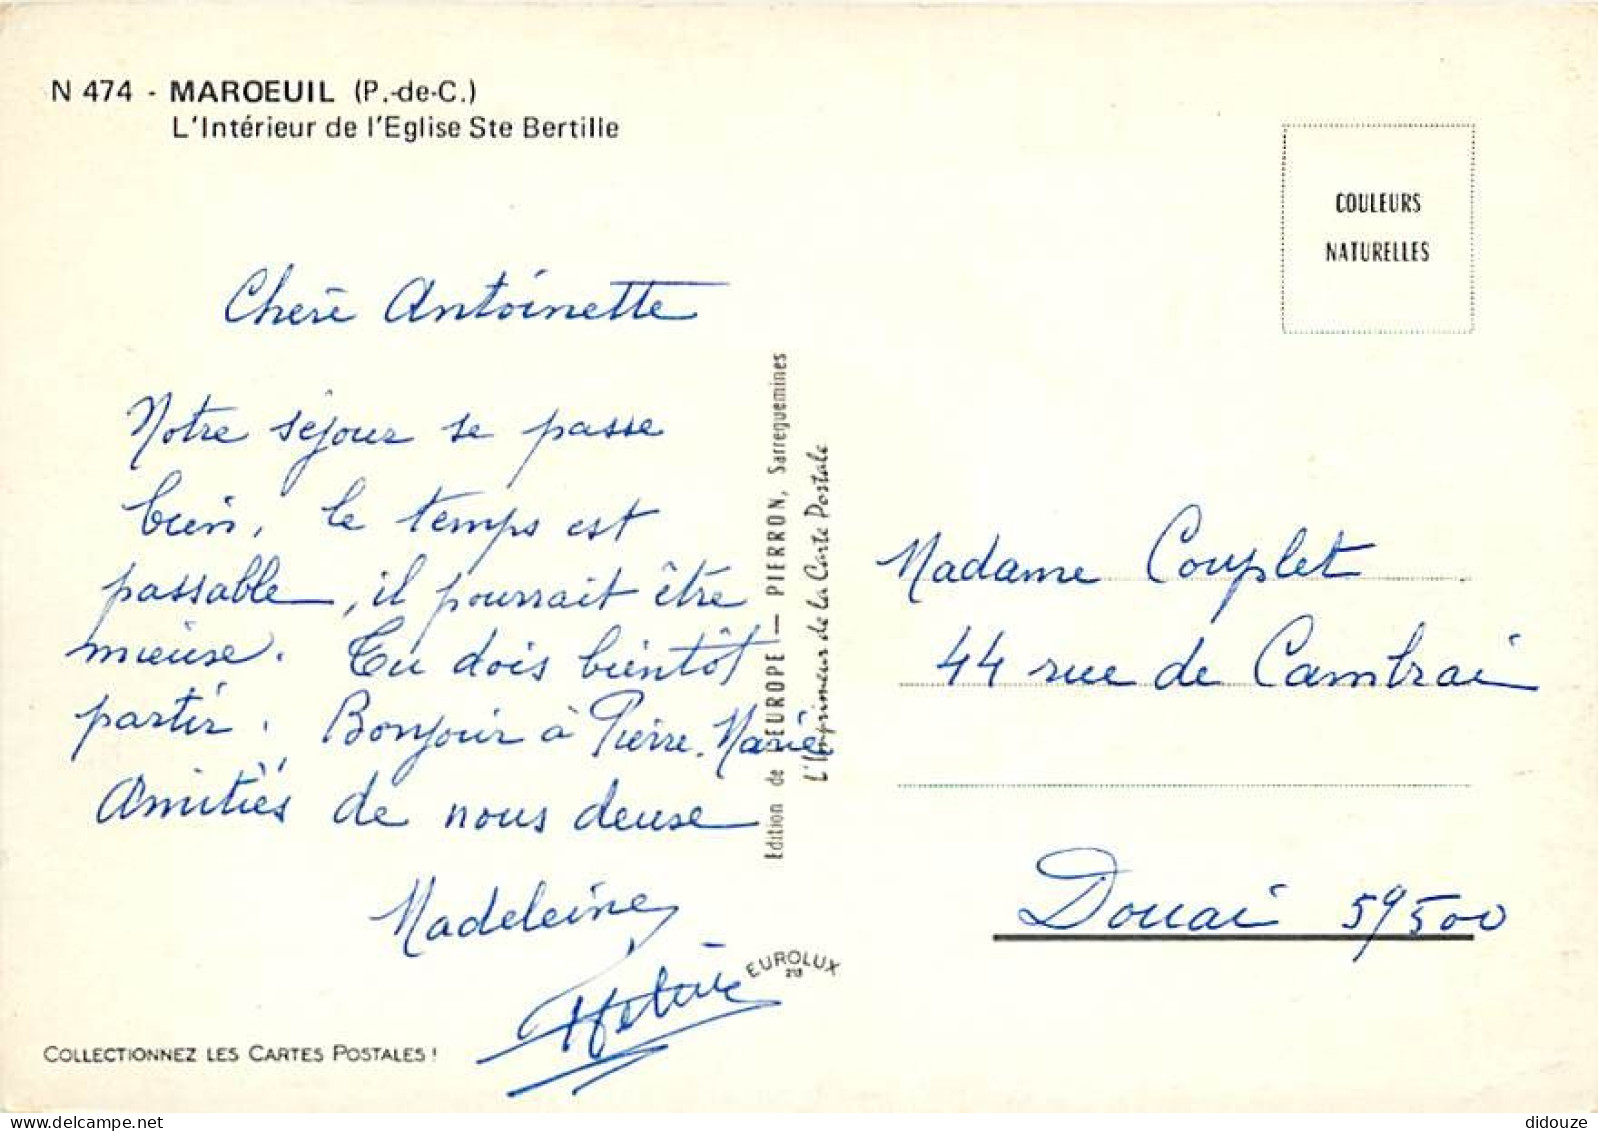 N 474 - MAROEUIL (P.-de-C.)
L'Intérieur de l'Eglise Ste Bertille
COULEURS
NATURELLES
Chère Antoinette
Notre séjour se passe
bien, le temps est
passable, il pourrait être
mieuse. Tu dois bientôt
partir. Bonjour à Pierre. Marie
Amitiés de nous deuse
Madeleine
Edition de l'EUROPE — PIERRON, Sarreguemines
L'Imprimeur de la Carte Postale
Madame Couplet
44 rue de Cambrai
Douai 59500
EUROLUX
213
COLLECTIONNEZ LES CARTES POSTALES !
didouze